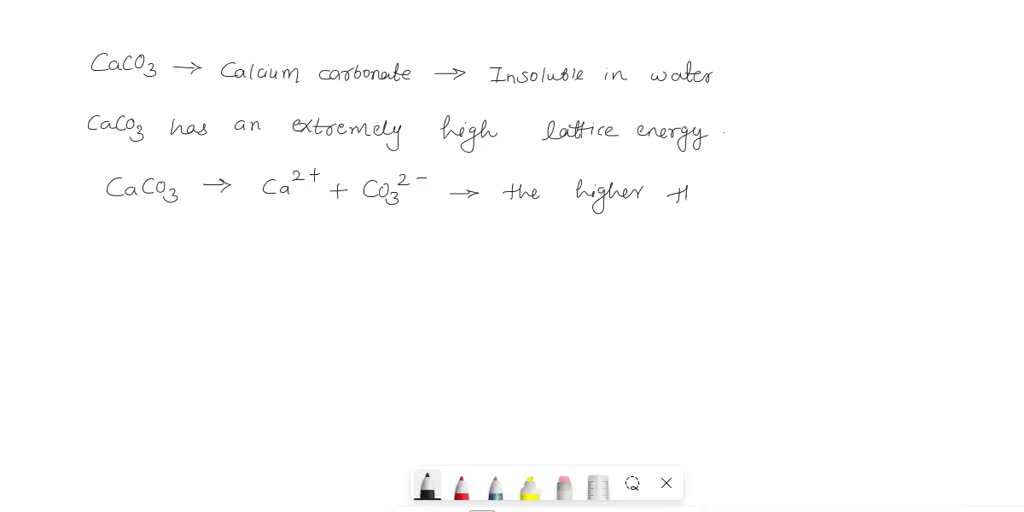 CaCO3 → Calcium carbonate → Insoluble in water
CaCO3 has an extremely high lattice energy.
CaCO3 → Ca2+ + CO3 2- → the higher